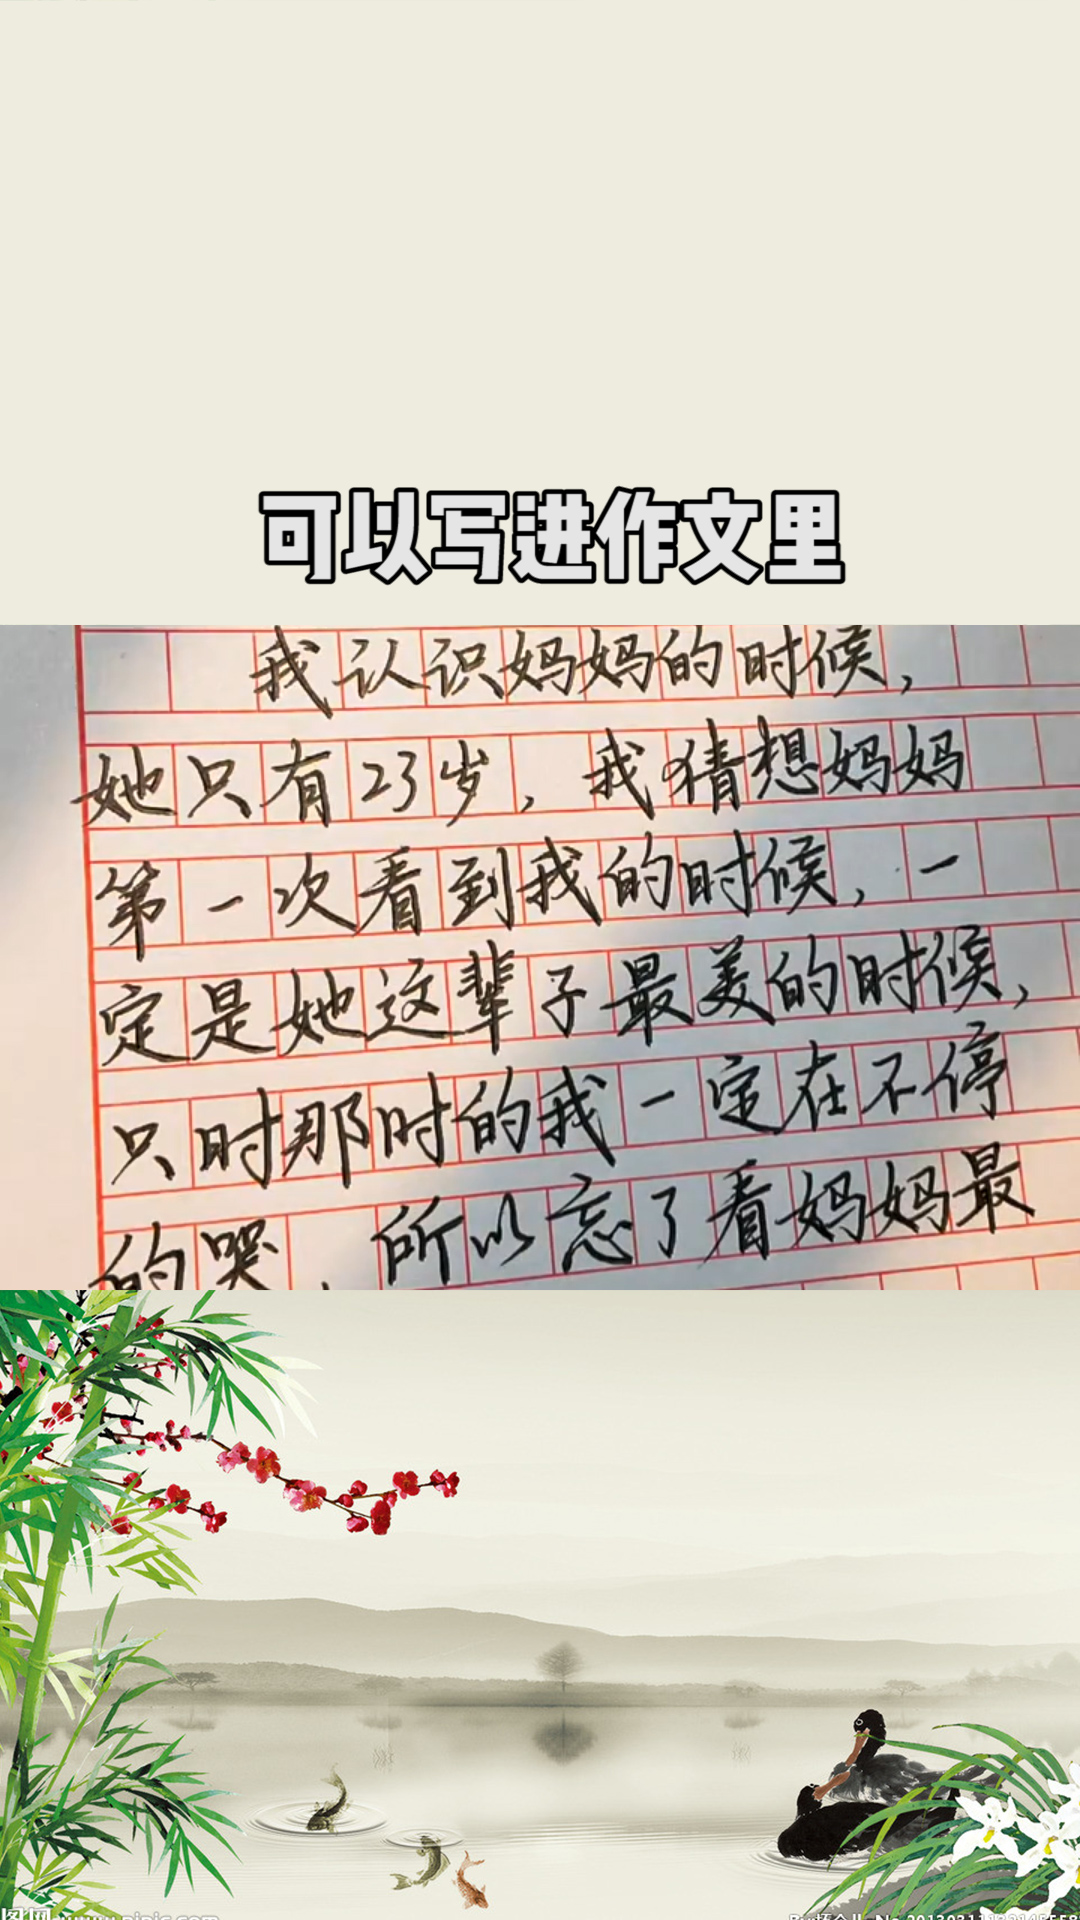 可以写进作文里
我认识妈妈的时候,
她只有23岁,我猜想妈妈
第一次看到我的时候,一
定是她这辈子最美的时候,
只时那时的我一定在不停
的哭,所以忘了看妈妈最